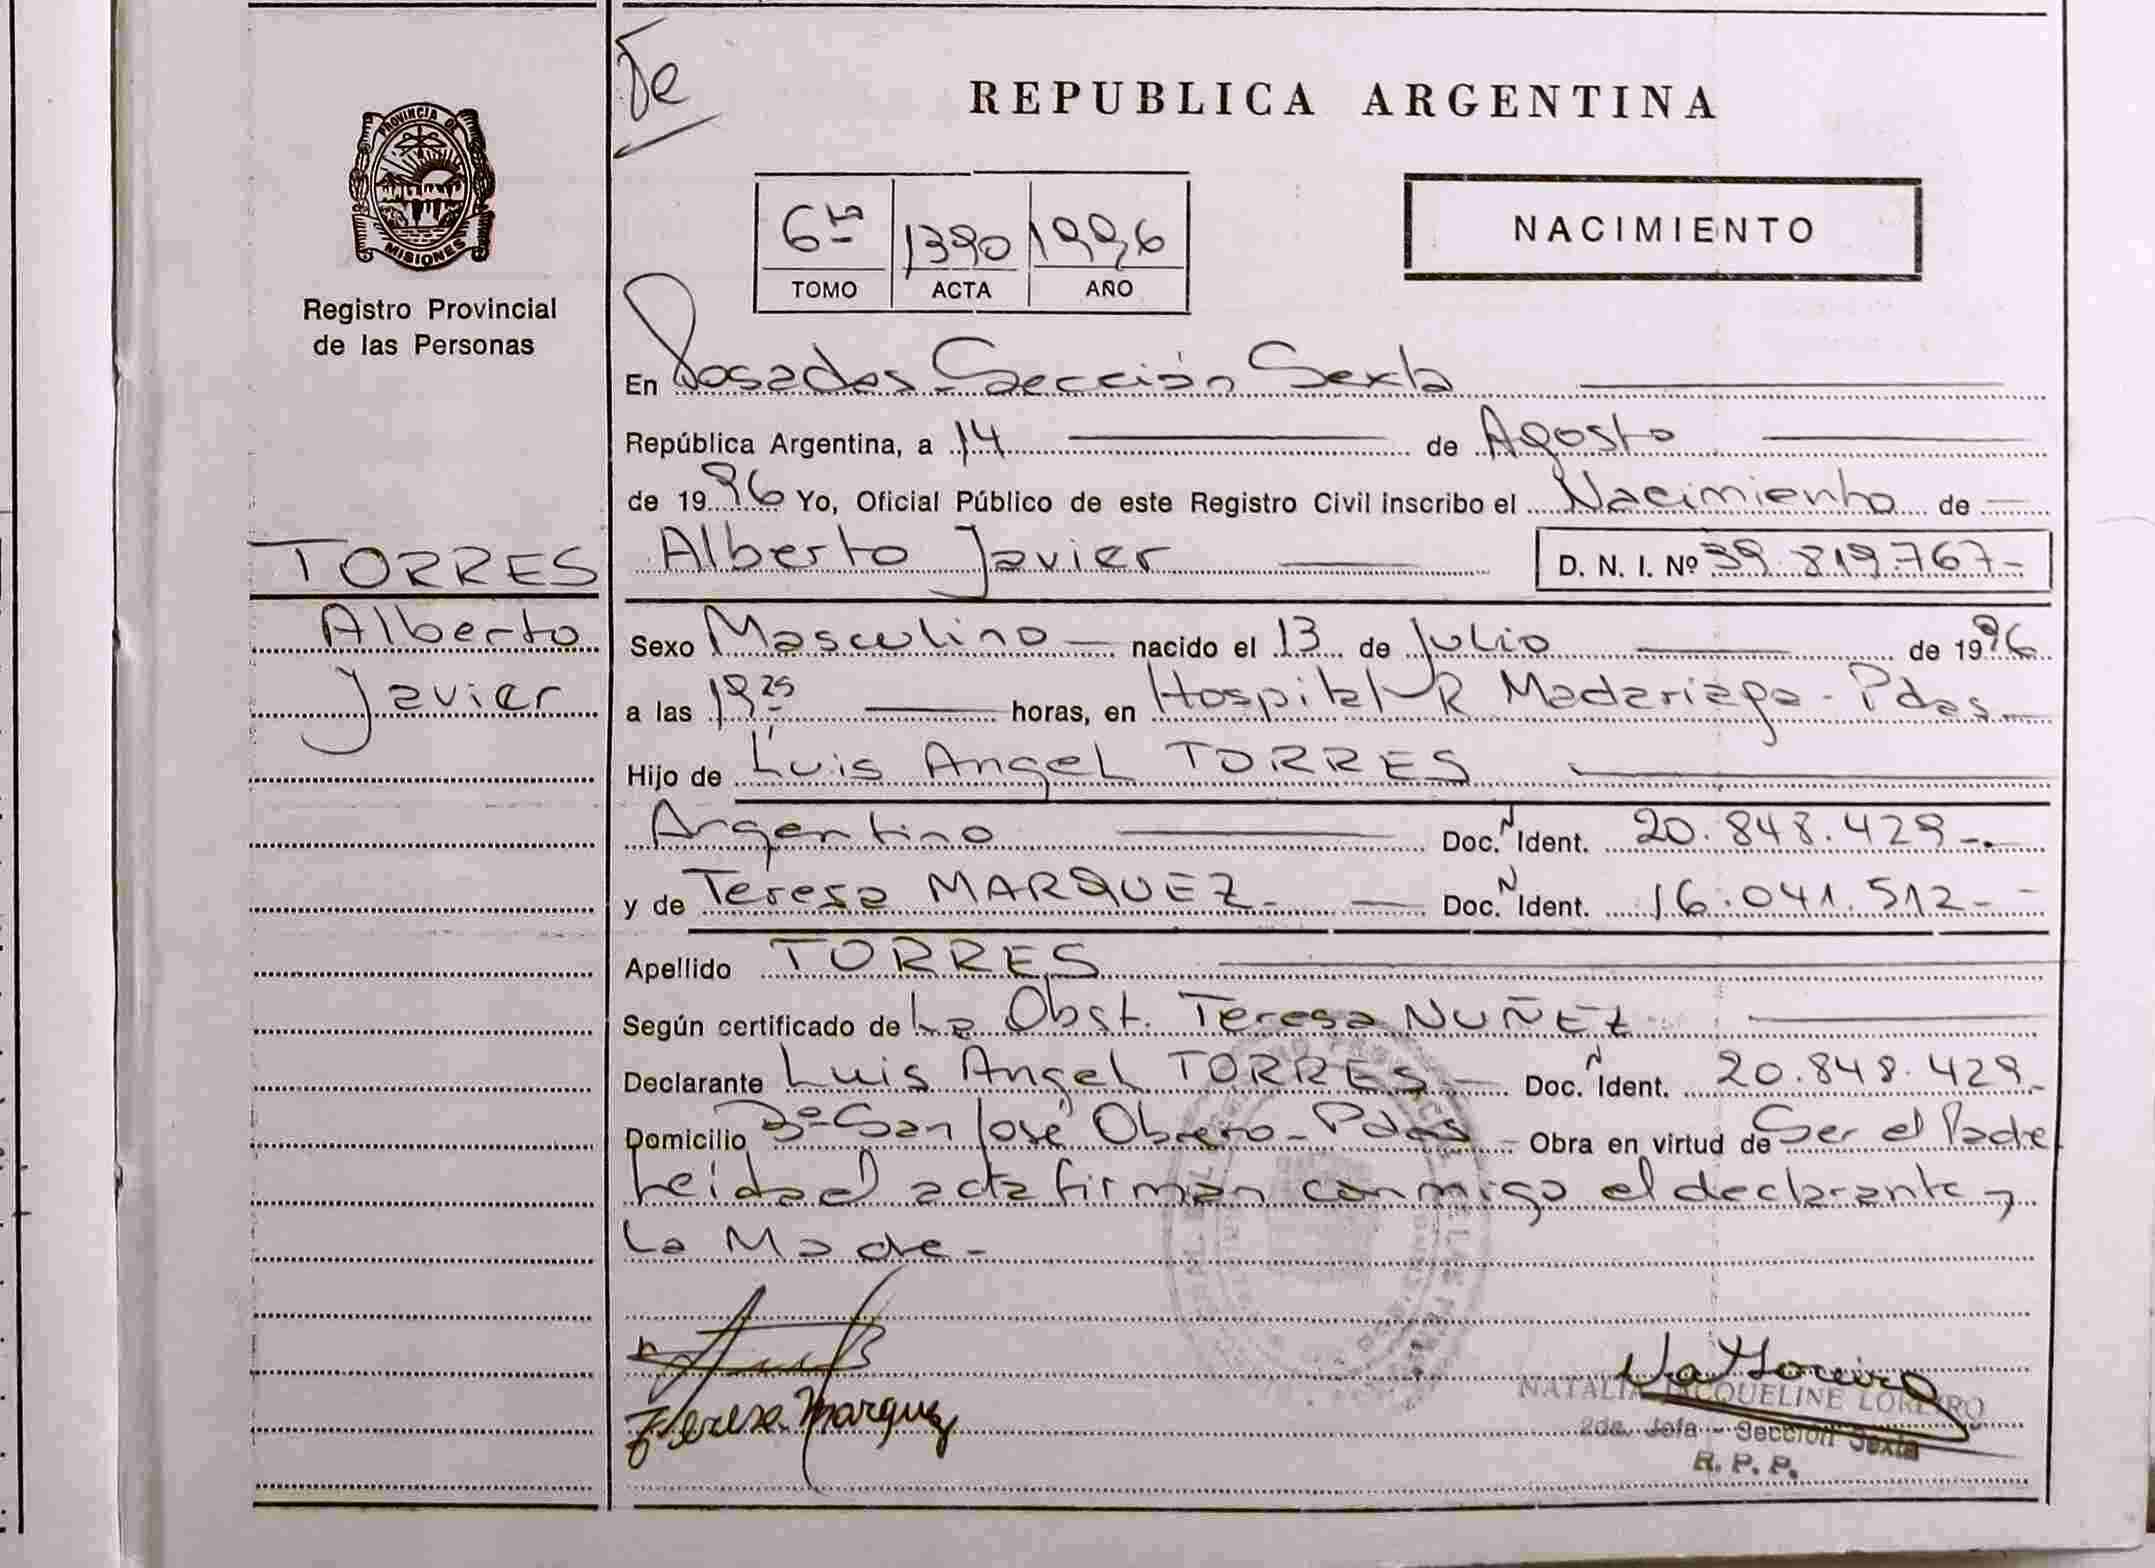 De
REPUBLICA ARGENTINA
PROVINCIA DE
MISIONES
Registro Provincial
de las Personas
6to 1390 1996
TOMO ACTA AÑO
NACIMIENTO
En Posadas - Sección Sexta
República Argentina, a 14 de Agosto
de 1996 Yo, Oficial Público de este Registro Civil inscribo el Nacimiento de
TORRES
Alberto
Javier
Alberto Javier D. N. I. Nº 39.819.767-
Sexo Masculino nacido el 13 de Julio de 1996
a las 19 25 horas, en Hospital R Madariaga - Pdas
Hijo de Luis Angel TORRES
Argentino Doc. N Ident. 20.848.429-.
y de Teresa MARQUEZ- Doc. N Ident. 16.041.512-
Apellido TORRES
Según certificado de La Obst. Teresa NUÑEZ
Declarante Luis Angel TORRES - Doc. N Ident. 20.848.429-
Domicilio Bº San José Obrero - Pdas - Obra en virtud de Ser el Padre
Leida el acta firman conmigo el declarante y
La Madre -
Teresa Marquez
NATALIA JACQUELINE LOREIRO
2da. Jefa - Sección Sexta
R. P. P.